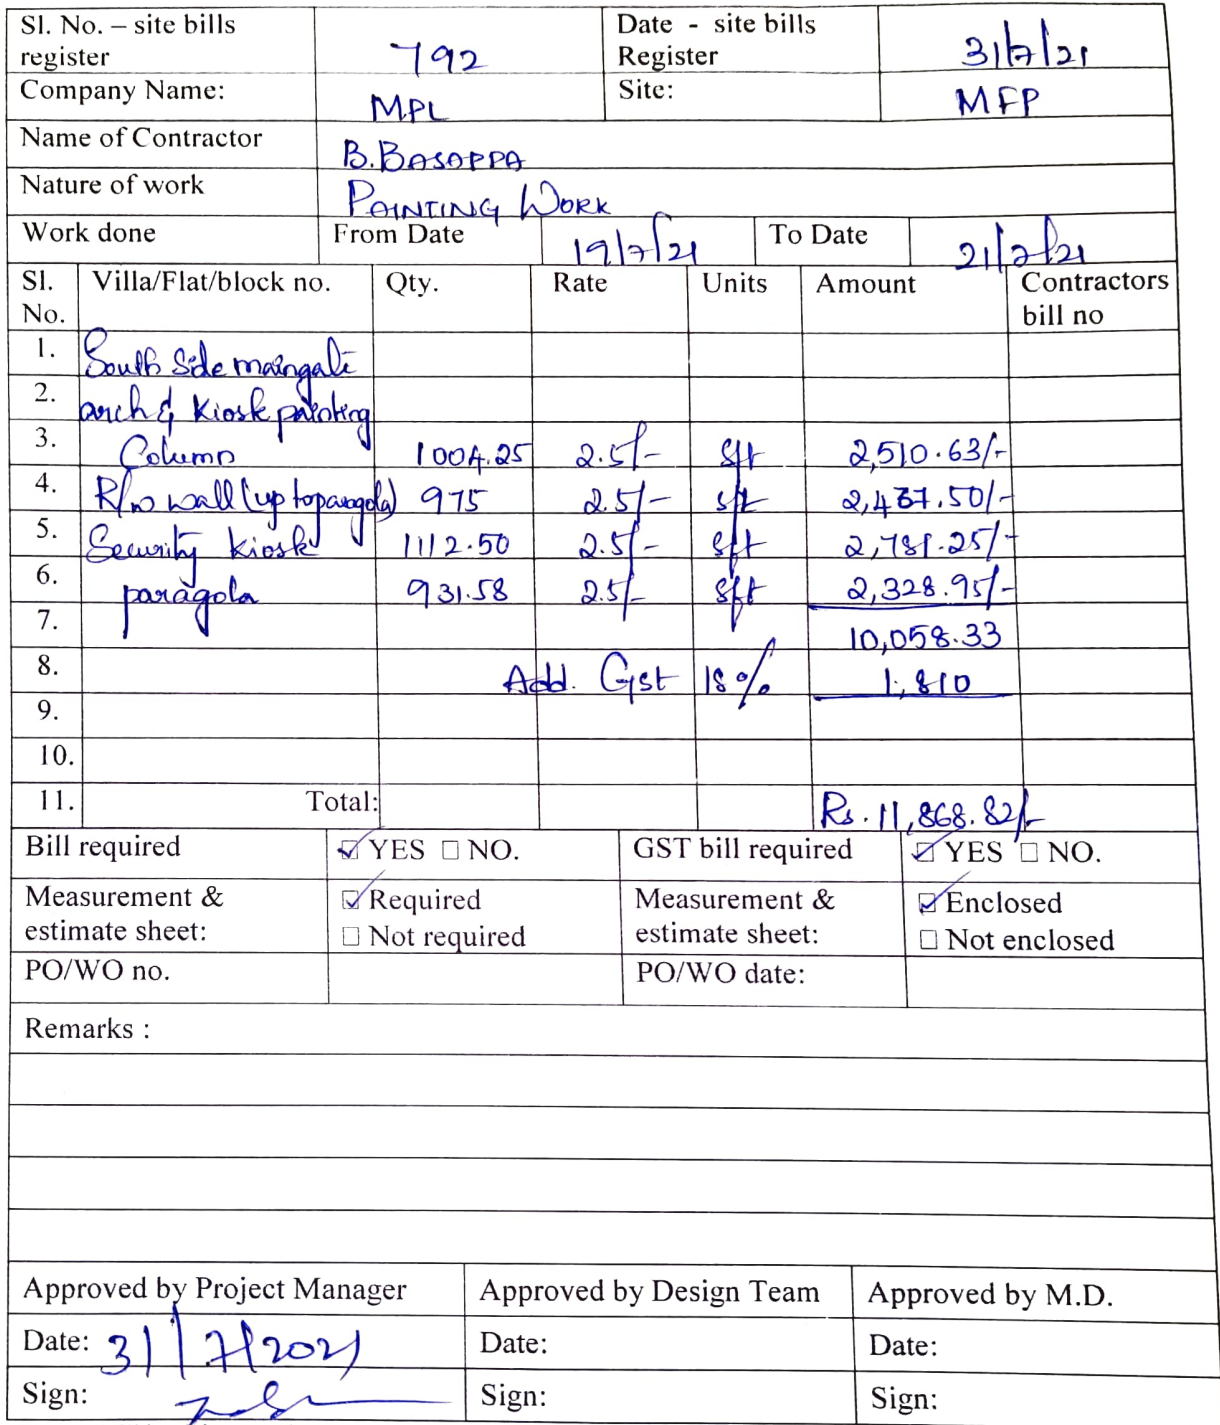 Sl. No. – site bills register 792 Date - site bills Register 31/7/21
Company Name: MPL Site: MFP
Name of Contractor B. BASAPPA
Nature of work PAINTING WORK
Work done From Date 19/7/21 To Date 21/7/21
Sl. No. Villa/Flat/block no. Qty. Rate Units Amount Contractors bill no
1. South Side maingate
2. arch & kiosk painting
3. Column 1004.25 2.5/- sft 2,510.63/-
4. R/w wall (up to paragola) 975 2.5/- sft 2,437.50/-
5. Security kiosk 1112.50 2.5/- sft 2,781.25/-
6. paragola 931.58 2.5/- sft 2,328.95/-
7. 10,058.33
8. Add. Gst 18% 1,810
9.
10.
11. Total: Rs. 11,868.82/-
Bill required ☑ YES □ NO. GST bill required ☑ YES □ NO.
Measurement & estimate sheet: ☑ Required □ Not required Measurement & estimate sheet: ☑ Enclosed □ Not enclosed
PO/WO no. PO/WO date:
Remarks :
Approved by Project Manager Approved by Design Team Approved by M.D.
Date: 31/7/2021 Date: Date:
Sign: Sign: Sign: